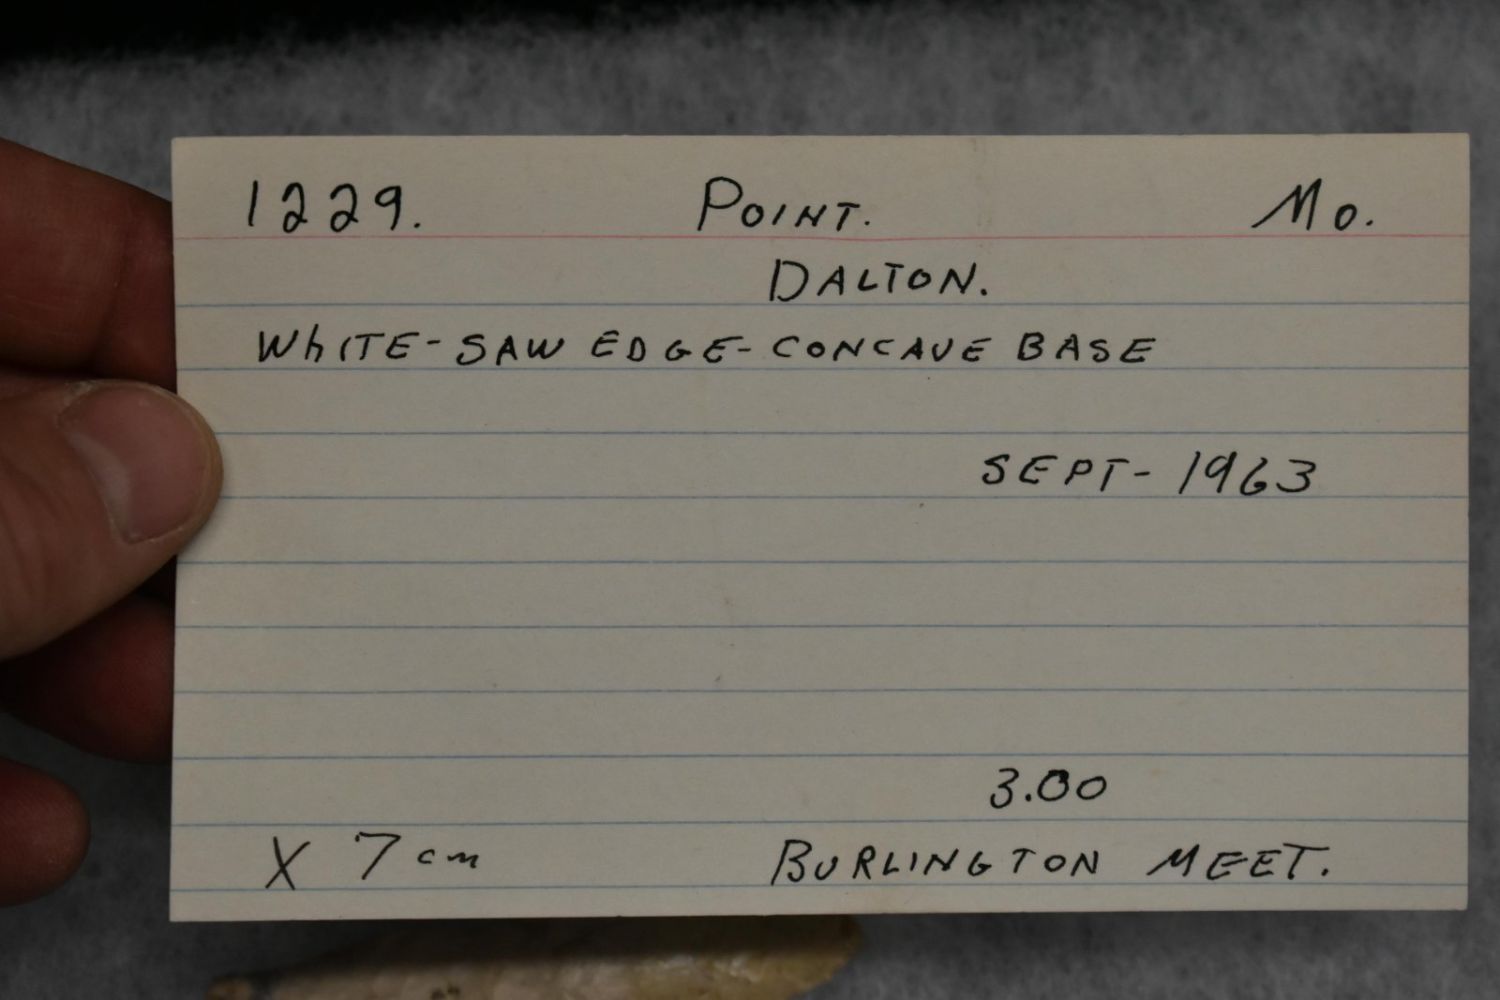 1229. POINT. Mo.
DALTON.
WhITE-SAW EDGE-CONCAVE BASE
SEPT-1963
3.00
X 7cm BURLINGTON MEET.